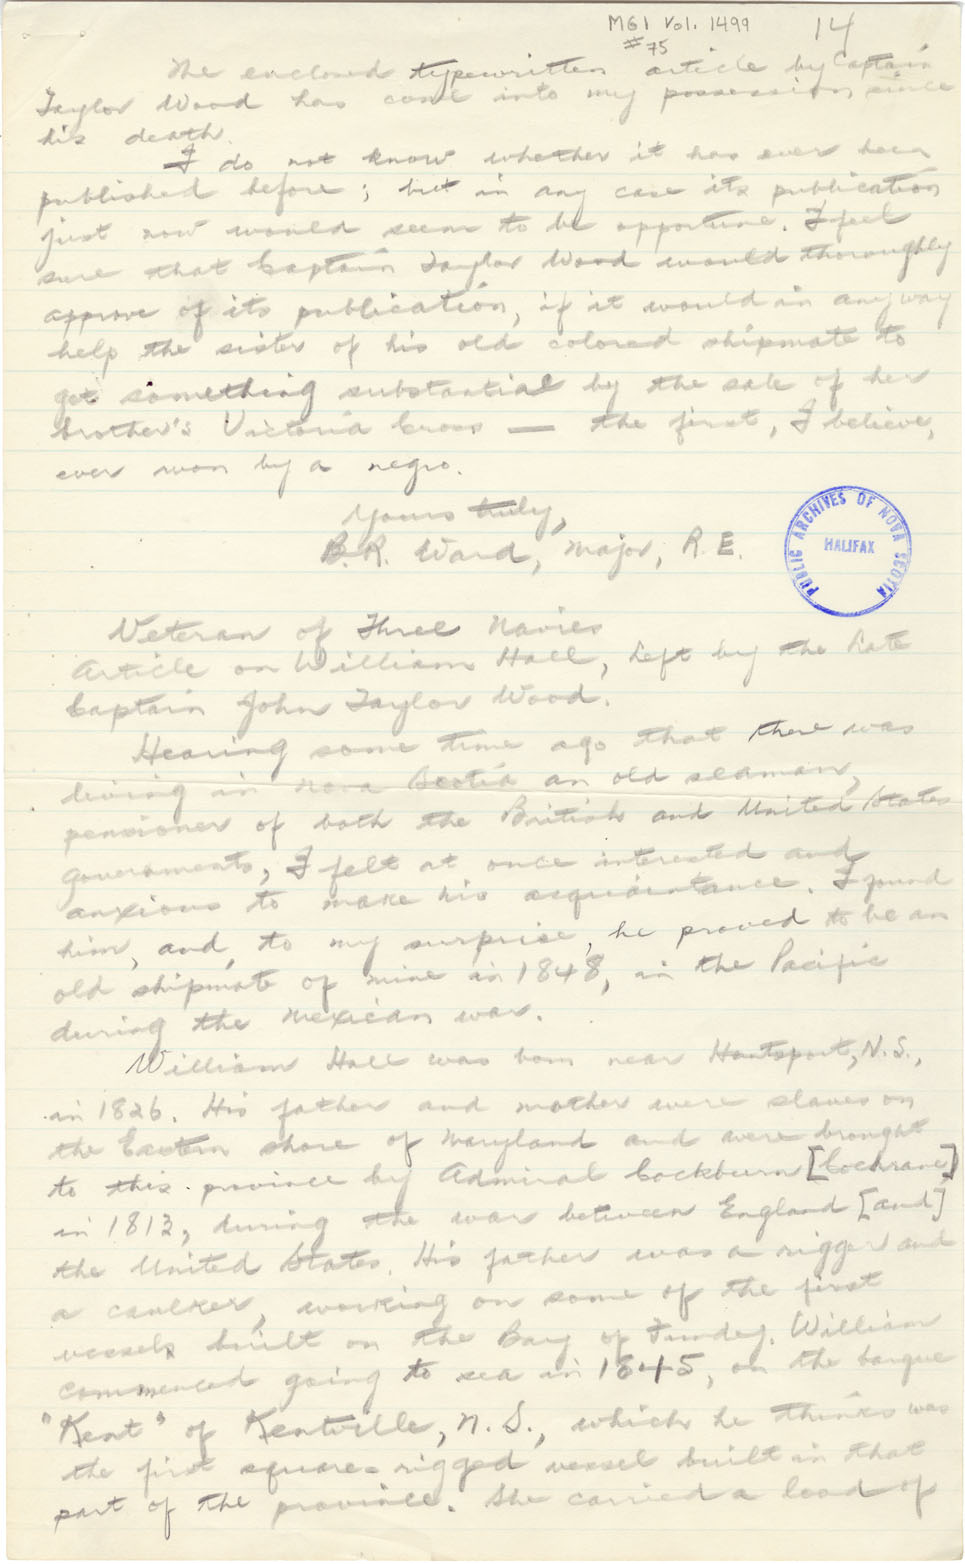 MG1 Vol. 1499
#75
14
The enclosed typewritten article by Captain
Taylor Wood has come into my possession since
his death.
I do not know whether it has ever been
published before; but in any case its publication
just now would seem to be opportune. I feel
sure that Captain Taylor Wood would thoroughly
approve of its publication, if it would in any way
help the sister of his old colored shipmate to
get something substantial by the sale of her
brother's Victoria Cross — the first, I believe,
ever won by a negro.
Yours truly,
B.R. Ward, Major, R.E.
PUBLIC ARCHIVES OF NOVA SCOTIA
HALIFAX
Veteran of Three Navies
Article on William Hall, Left by the Late
Captain John Taylor Wood.
Hearing some time ago that there was
living in Nova Scotia an old seaman,
pensioner of both the British and United States
governments, I felt at once interested and
anxious to make his acquaintance. I found
him, and, to my surprise, he proved to be an
old shipmate of mine in 1848, in the Pacific
during the Mexican war.
William Hall was born near Hantsport, N.S.,
in 1826. His father and mother were slaves on
the Eastern shore of Maryland and were brought
to this province by Admiral Cockburn [Cochrane]
in 1812, during the war between England [and]
the United States. His father was a rigger and
a caulker, working on some of the first
vessels built on the Bay of Fundy. William
commenced going to sea in 1845, on the barque
"Kent" of Kentville, N.S., which he thinks was
the first square-rigged vessel built in that
part of the province. She carried a load of